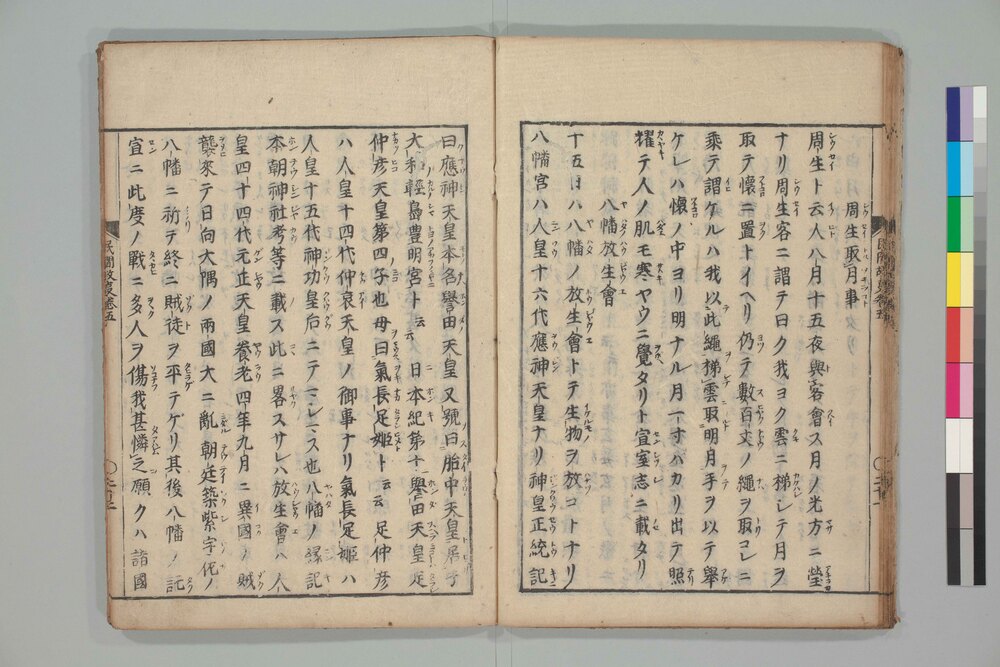 周生取月事
周生ト云人八月十五夜與客會ス月ノ光方ニ瑩
ナリ周生客ニ謂テ曰ク我ヨク雲ニ梯シテ月ヲ
取テ懷ニ置トイヘリ仍テ數百丈ノ繩ヲ取コレニ
乘テ謂ケルハ我以此繩梯雲取明月手ヲ以テ舉
ケレハ懷ノ中ヨリ明ナル月一寸ハカリ出テ照
耀テ人ノ肌モ寒ヤウニ覺タリト宣室志ニ載タリ
八幡放生會
十五日ハ八幡ノ放生會トテ生物ヲ放コトナリ
八幡宮ハ人皇十六代應神天皇ナリ神皇正統記
曰應神天皇本名譽田天皇又號曰胎中天皇居于
大和輕島豊明宮ト云云日本紀第十譽田天皇足
仲彦天皇第四子也母曰氣長足姫ト云云足仲彦
ハ人皇十四代仲哀天皇ノ御事ナリ氣長足姫ハ
人皇十五代神功皇后ニテマシマス也八幡ノ縁記
本朝神社考等ニ載ス此ニ畧スサレハ放生會ハ人
皇四十四代元正天皇養老四年九月ニ異國ノ賊
襲來テ日向大隅ノ兩國大ニ亂朝廷築紫宇佐ノ
八幡ニ祈テ終ニ賊徒ヲ平テゲリ其後八幡ノ託
宣ニ此度ノ戰ニ多人ヲ傷我甚憐之願クハ諸國
民間故叓卷五